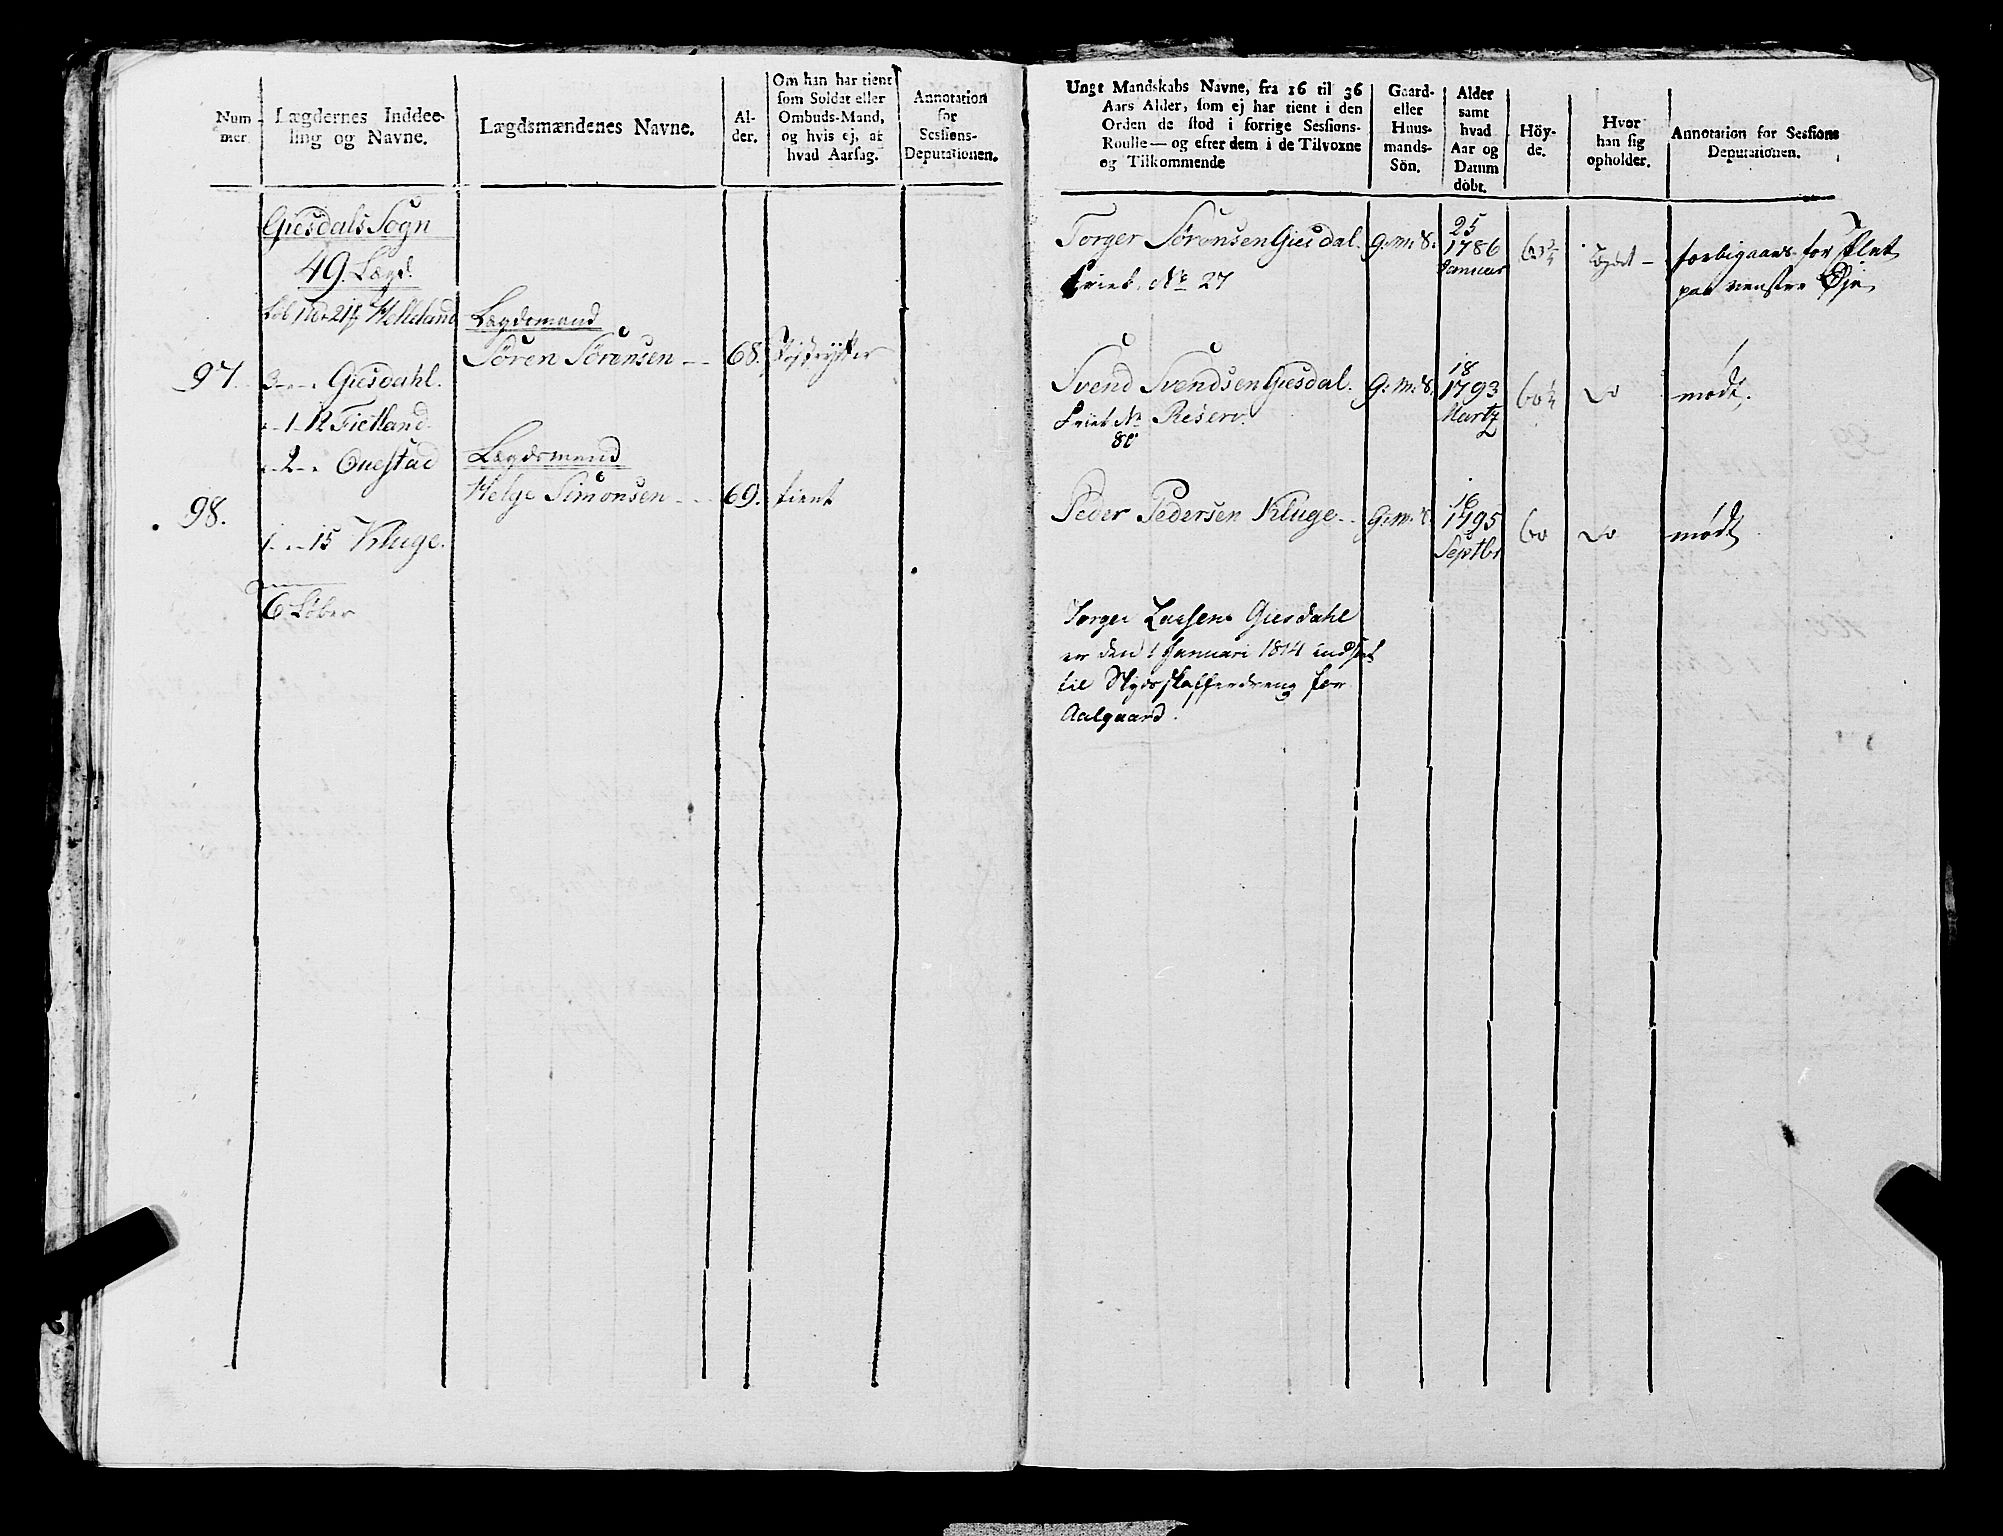 Num-
mer
Lægdernes Inddee-
ling og Navne.
Lægdsmændenes Navne.
Al-
der.
Om han har tient
som Soldat eller
Ombuds-Mand,
og hvis ej, af
hvad Aarsag.
Annotation
for
Sessions-
Deputationen.
Giesdals Sogn
49. Lægd.
Helleland
Lægdsmand
97.
Søren Sørensen
68.
3 Giesdahl.
1 12 Fietland
2 Ouestad
Lægdsmand
98.
Helge Simonsen
69.
tient
1 15 Kluge.
6 Løber
Ungt Mandskabs Navne, fra 16 til 36
Aars Alder, som ej har tient i den
Orden de stod i forrige Sessions-
Roulle — og efter dem i de Tilvoxne
og Tilkommende
Gaard-
eller
Huus-
mands-
Sön.
Alder
samt
hvad
Aar og
Datum
döbt.
Höy-
de.
Hvor
han sig
opholder.
Annotation for Sessions
Deputationen.
Torger Sørensen Giesdal.
G. M. S.
25
1786
Januar
No 27
forbigaaes for Plet
paa venstre Øje
Svend Svendsen Giesdal.
G. M. S.
18
1793
Martz
60 1/4
do
mødt.
No Reserv.
80
Peder Pedersen Kluge
G. M. S.
16
1795
Septbr
60
do
mødt
Torger Lassen Giesdahl
er den 1 Januari 1814 indsat
til Skydsskafferdreng for
Aalgaard.